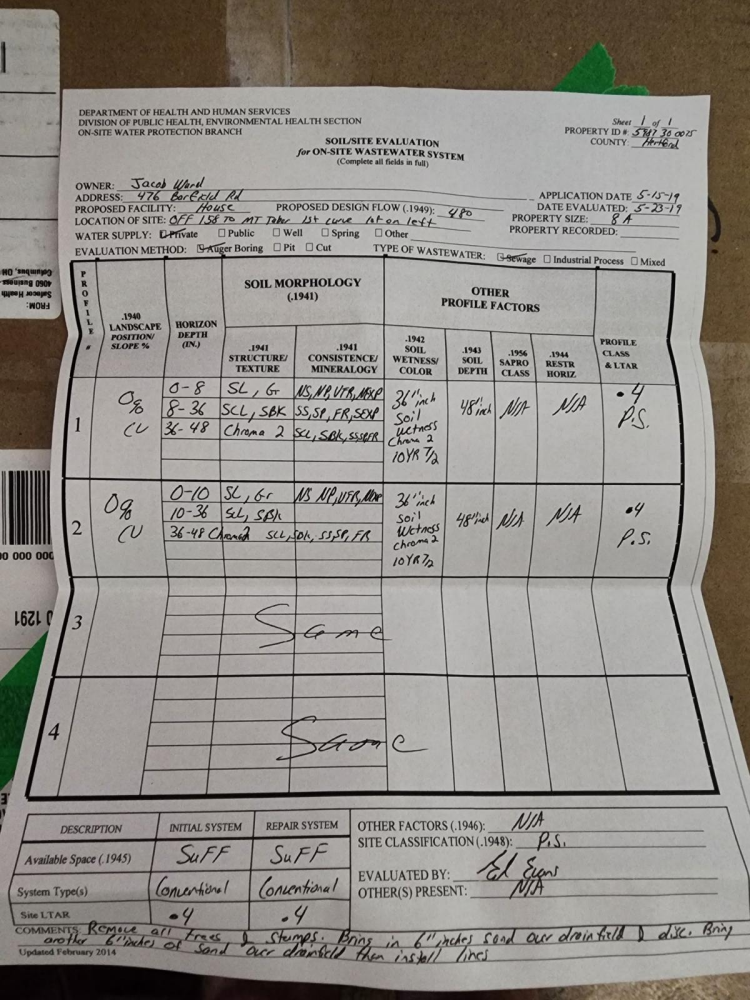 DEPARTMENT OF HEALTH AND HUMAN SERVICES
DIVISION OF PUBLIC HEALTH, ENVIRONMENTAL HEALTH SECTION
ON-SITE WATER PROTECTION BRANCH
Sheet 1 of 1
PROPERTY ID #: 5947 30 0025
COUNTY: Hertford
SOIL/SITE EVALUATION
for ON-SITE WASTEWATER SYSTEM
(Complete all fields in full)
OWNER: Jacob Ward
ADDRESS: 476 Barfield Rd
APPLICATION DATE 5-15-19
PROPOSED FACILITY: House PROPOSED DESIGN FLOW (.1949): 480 DATE EVALUATED: 5-23-19
LOCATION OF SITE: OFF 158 TO MT Tabor 1st curve lot on left PROPERTY SIZE: 8 A
WATER SUPPLY: Private Public Well Spring Other PROPERTY RECORDED:
EVALUATION METHOD: Auger Boring Pit Cut TYPE OF WASTEWATER: Sewage Industrial Process Mixed
PROFILE #
.1940 LANDSCAPE POSITION/ SLOPE %
HORIZON DEPTH (IN.)
SOIL MORPHOLOGY (.1941)
OTHER PROFILE FACTORS
.1941 STRUCTURE/ TEXTURE
.1941 CONSISTENCE/ MINERALOGY
.1942 SOIL WETNESS/ COLOR
.1943 SOIL DEPTH
.1956 SAPRO CLASS
.1944 RESTR HORIZ
PROFILE CLASS & LTAR
1 0% CU
0-8 SL, Gr NS, NP, VFR, NEXP
8-36 SCL, SBK SS, SP, FR, SEXP
36-48 Chroma 2 SCL, SBK, SSSPFR
36" inch Soil Wetness Chroma 2 10YR 7/2
48" inch N/A N/A .4 P.S.
2 0% CU
0-10 SL, Gr NS NP, VFR, NEXP
10-36 SCL, SBK
36-48 Chroma 2 SCL, SBK, SS, SP, FR
36" inch Soil Wetness chroma 2 10YR 7/2
48" inch N/A N/A .4 P.S.
3 Same
4 Same
DESCRIPTION INITIAL SYSTEM REPAIR SYSTEM
Available Space (.1945) SUFF SUFF
System Type(s) Conventional Conventional
Site LTAR .4 .4
OTHER FACTORS (.1946): N/A
SITE CLASSIFICATION (.1948): P.S.
EVALUATED BY: Ed Evans
OTHER(S) PRESENT: N/A
COMMENTS: Remove all trees & stumps. Bring in 6" inches sand over drainfield & disc. Bring
another 6" inches of sand over drainfield then install lines
Updated February 2014
FROM:
Safecor Health
4060 Business
Columbus, OH
000 000 00
0 1291